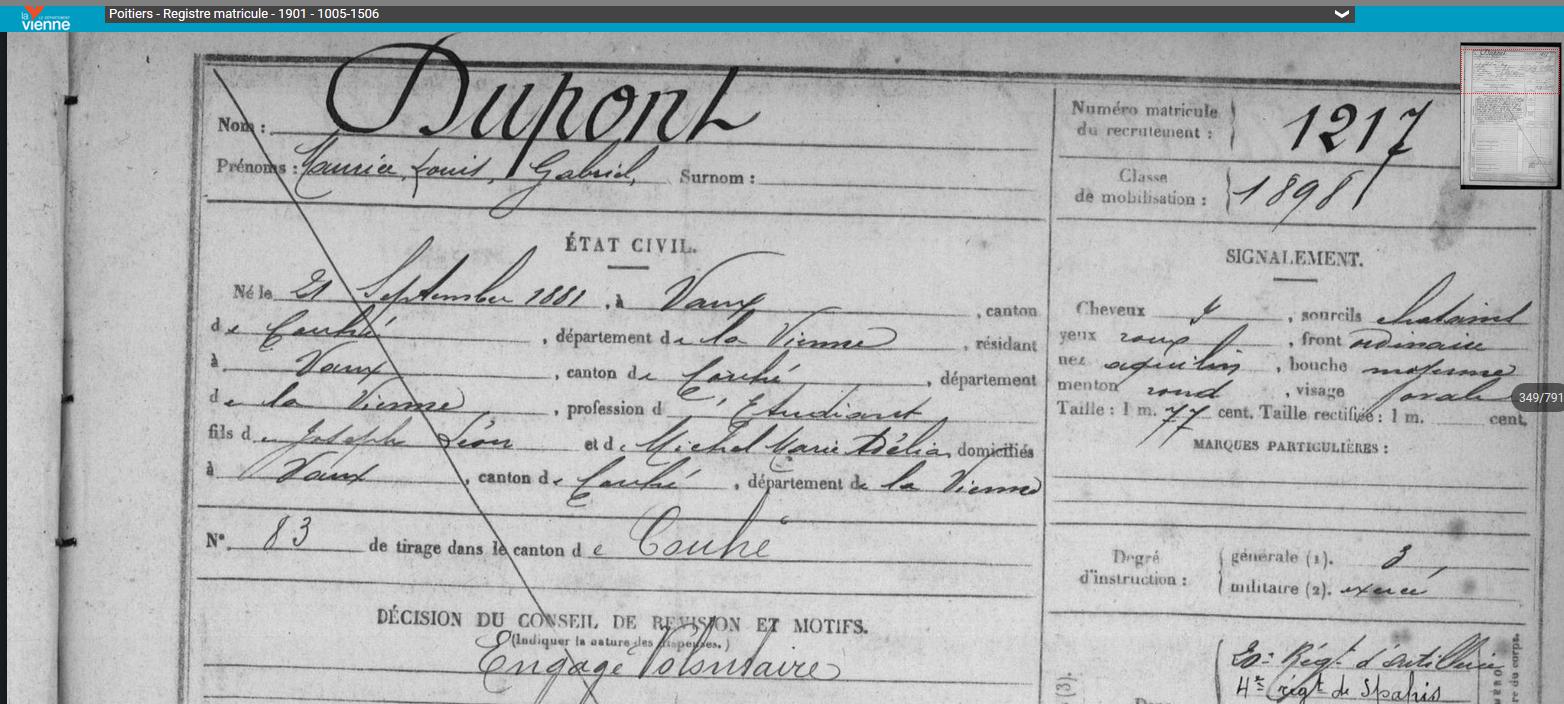 la vienne
LE DÉPARTEMENT
Poitiers - Registre matricule - 1901 - 1005-1506
Nom : Dupont
Prénoms : Maurice, Louis, Gabriel, Surnom :
Numéro matricule du recrutement : 1217
Classe de mobilisation : 1898
ÉTAT CIVIL.
Né le 21 Septembre 1881, à Vaux, canton
de Couhé, département de la Vienne, résidant
à Vaux, canton de Couhé, département
de la Vienne, profession d'Etudiant
fils de Joseph Léon et de Michel Marie Délia domiciliés
à Vaux, canton de Couhé, département de la Vienne
N° 83 de tirage dans le canton de Couhé
DÉCISION DU CONSEIL DE REVISION ET MOTIFS.
(Indiquer la nature des dispenses.)
Engagé Volontaire
SIGNALEMENT.
Cheveux, sourcils chatains
yeux roux, front ordinaire
nez aquilin, bouche moyenne
menton rond, visage ovale
Taille : 1 m. 77 cent. Taille rectifiée : 1 m. cent.
MARQUES PARTICULIÈRES :
Degré d'instruction : générale (1). 3
militaire (2). exercé
20e Régt d'Artillerie
4e régt de Spahis
(3).
re du corps.
349/791